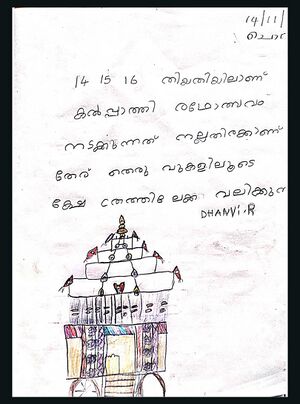 14/11/
14 15 16 തിയതിയിലാണ്
കൽപ്പാത്തി രഥോത്സവം
നടക്കുന്നത് നല്ലതിരക്കാണ്
തേര് തെരു വുകളിലൂടെ
ക്ഷേ ത്രത്തിലേക്ക വലിക്കുന
DHANVI.R